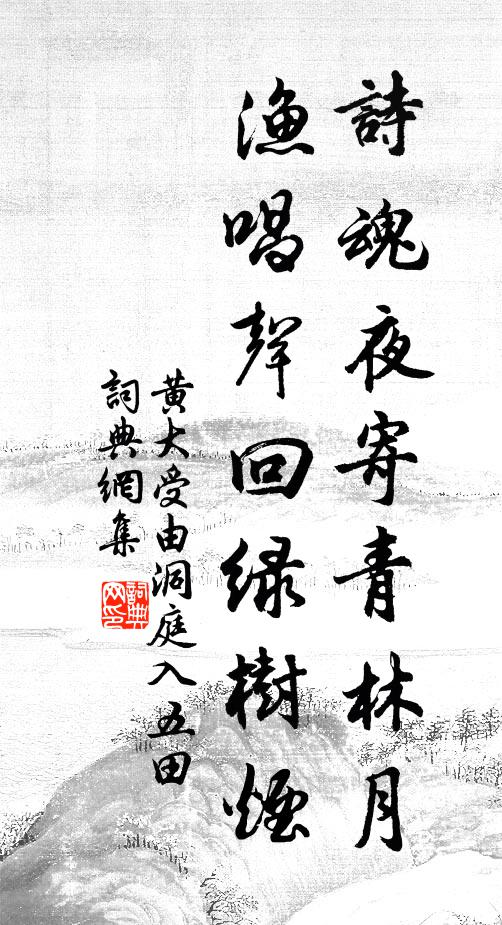 詩魂夜寄青林月
漁唱聲回绿樹煙
黃大受由洞庭入五田
詞典網集
詞典网印